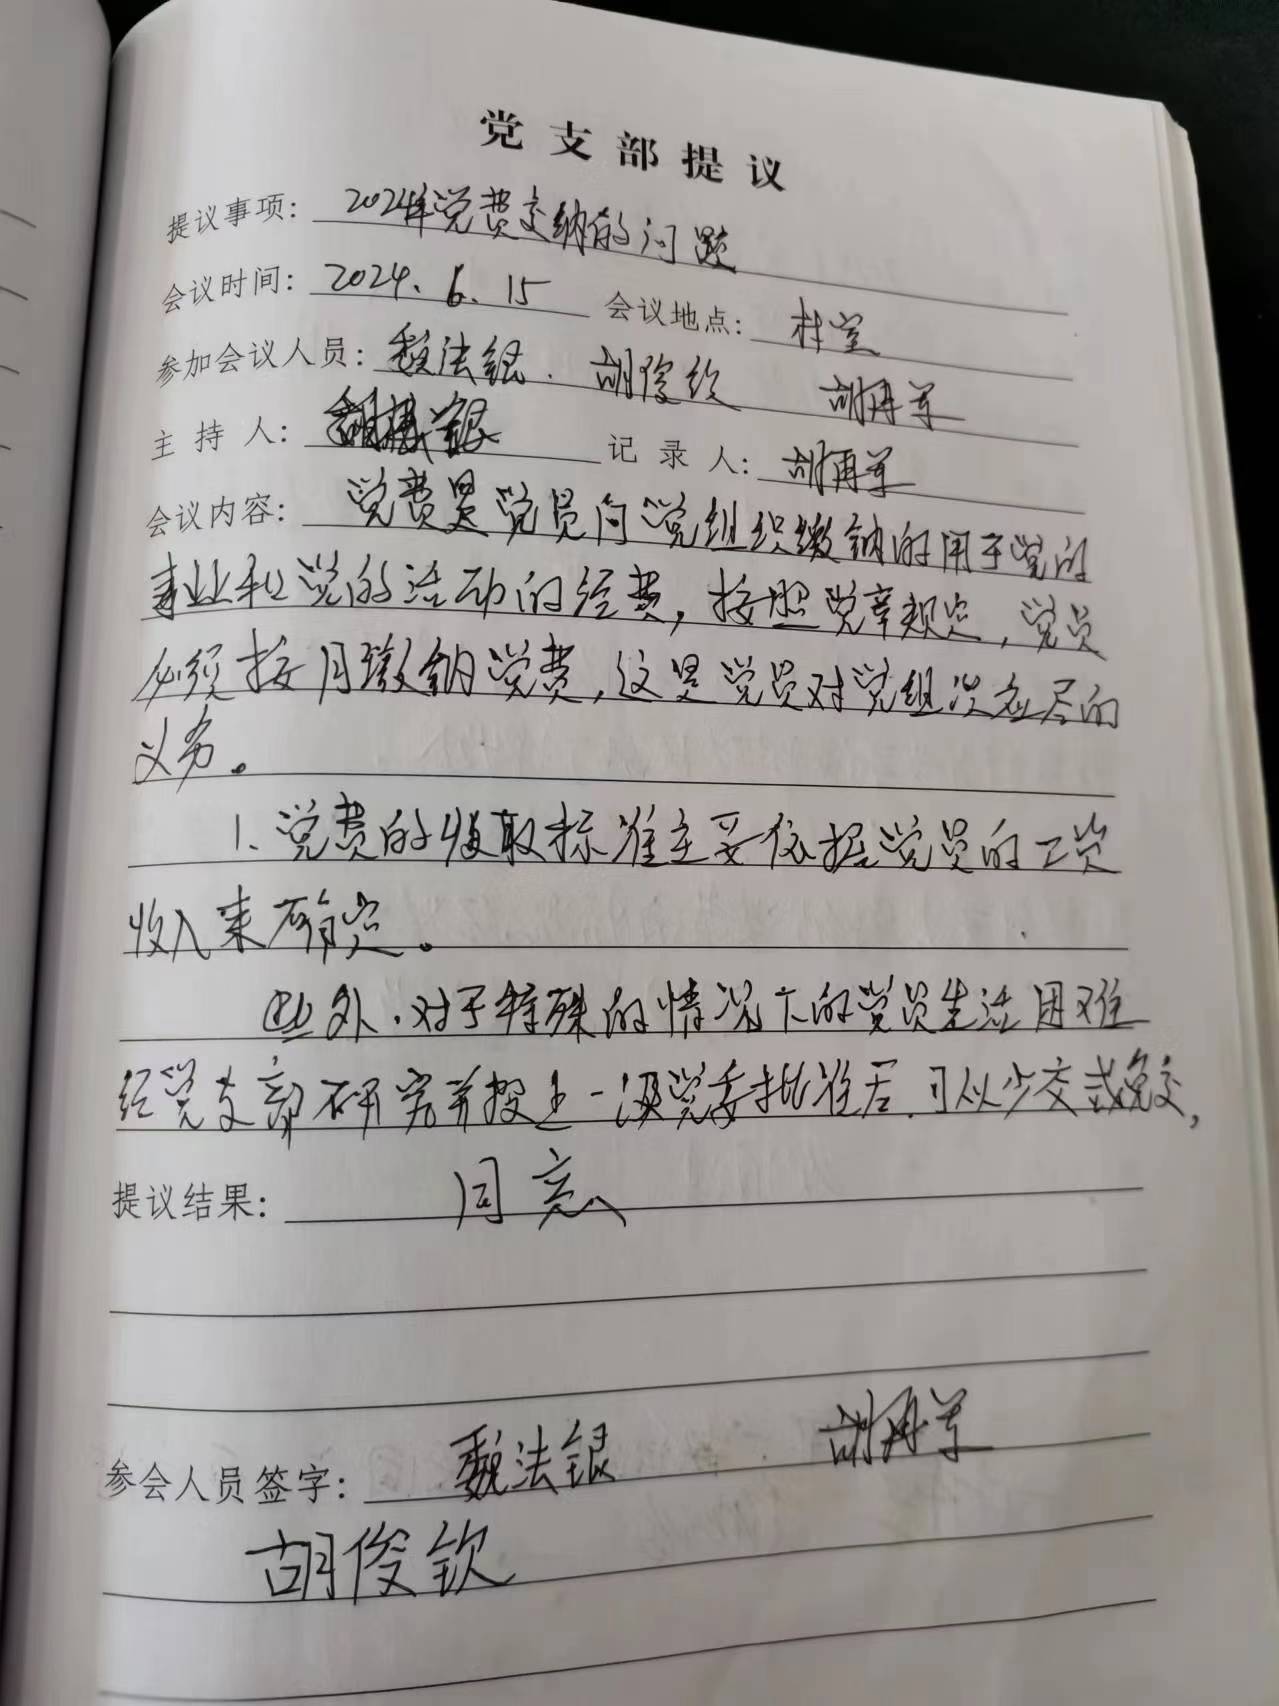 党支部提议
提议事项：2024年党费交纳的问题
会议时间：2024.6.15 会议地点：村室
参加会议人员：魏法银.胡俊钦 胡再军
主持人： 记录人：胡再军
会议内容：党费是党员向党组织缴纳的用于党的
事业和党的活动的经费，按照党章规定，党员
必须按月缴纳党费，这是党员对党组织应尽的
义务。
1.党费的收取标准主要依据党员的工资
收入来确定。
此外.对于特殊的情况下的党员生活困难
经党支部研究并报上一级党委批准后.可以少交或免交，
提议结果：同意
参会人员签字：魏法银 胡再军
胡俊钦